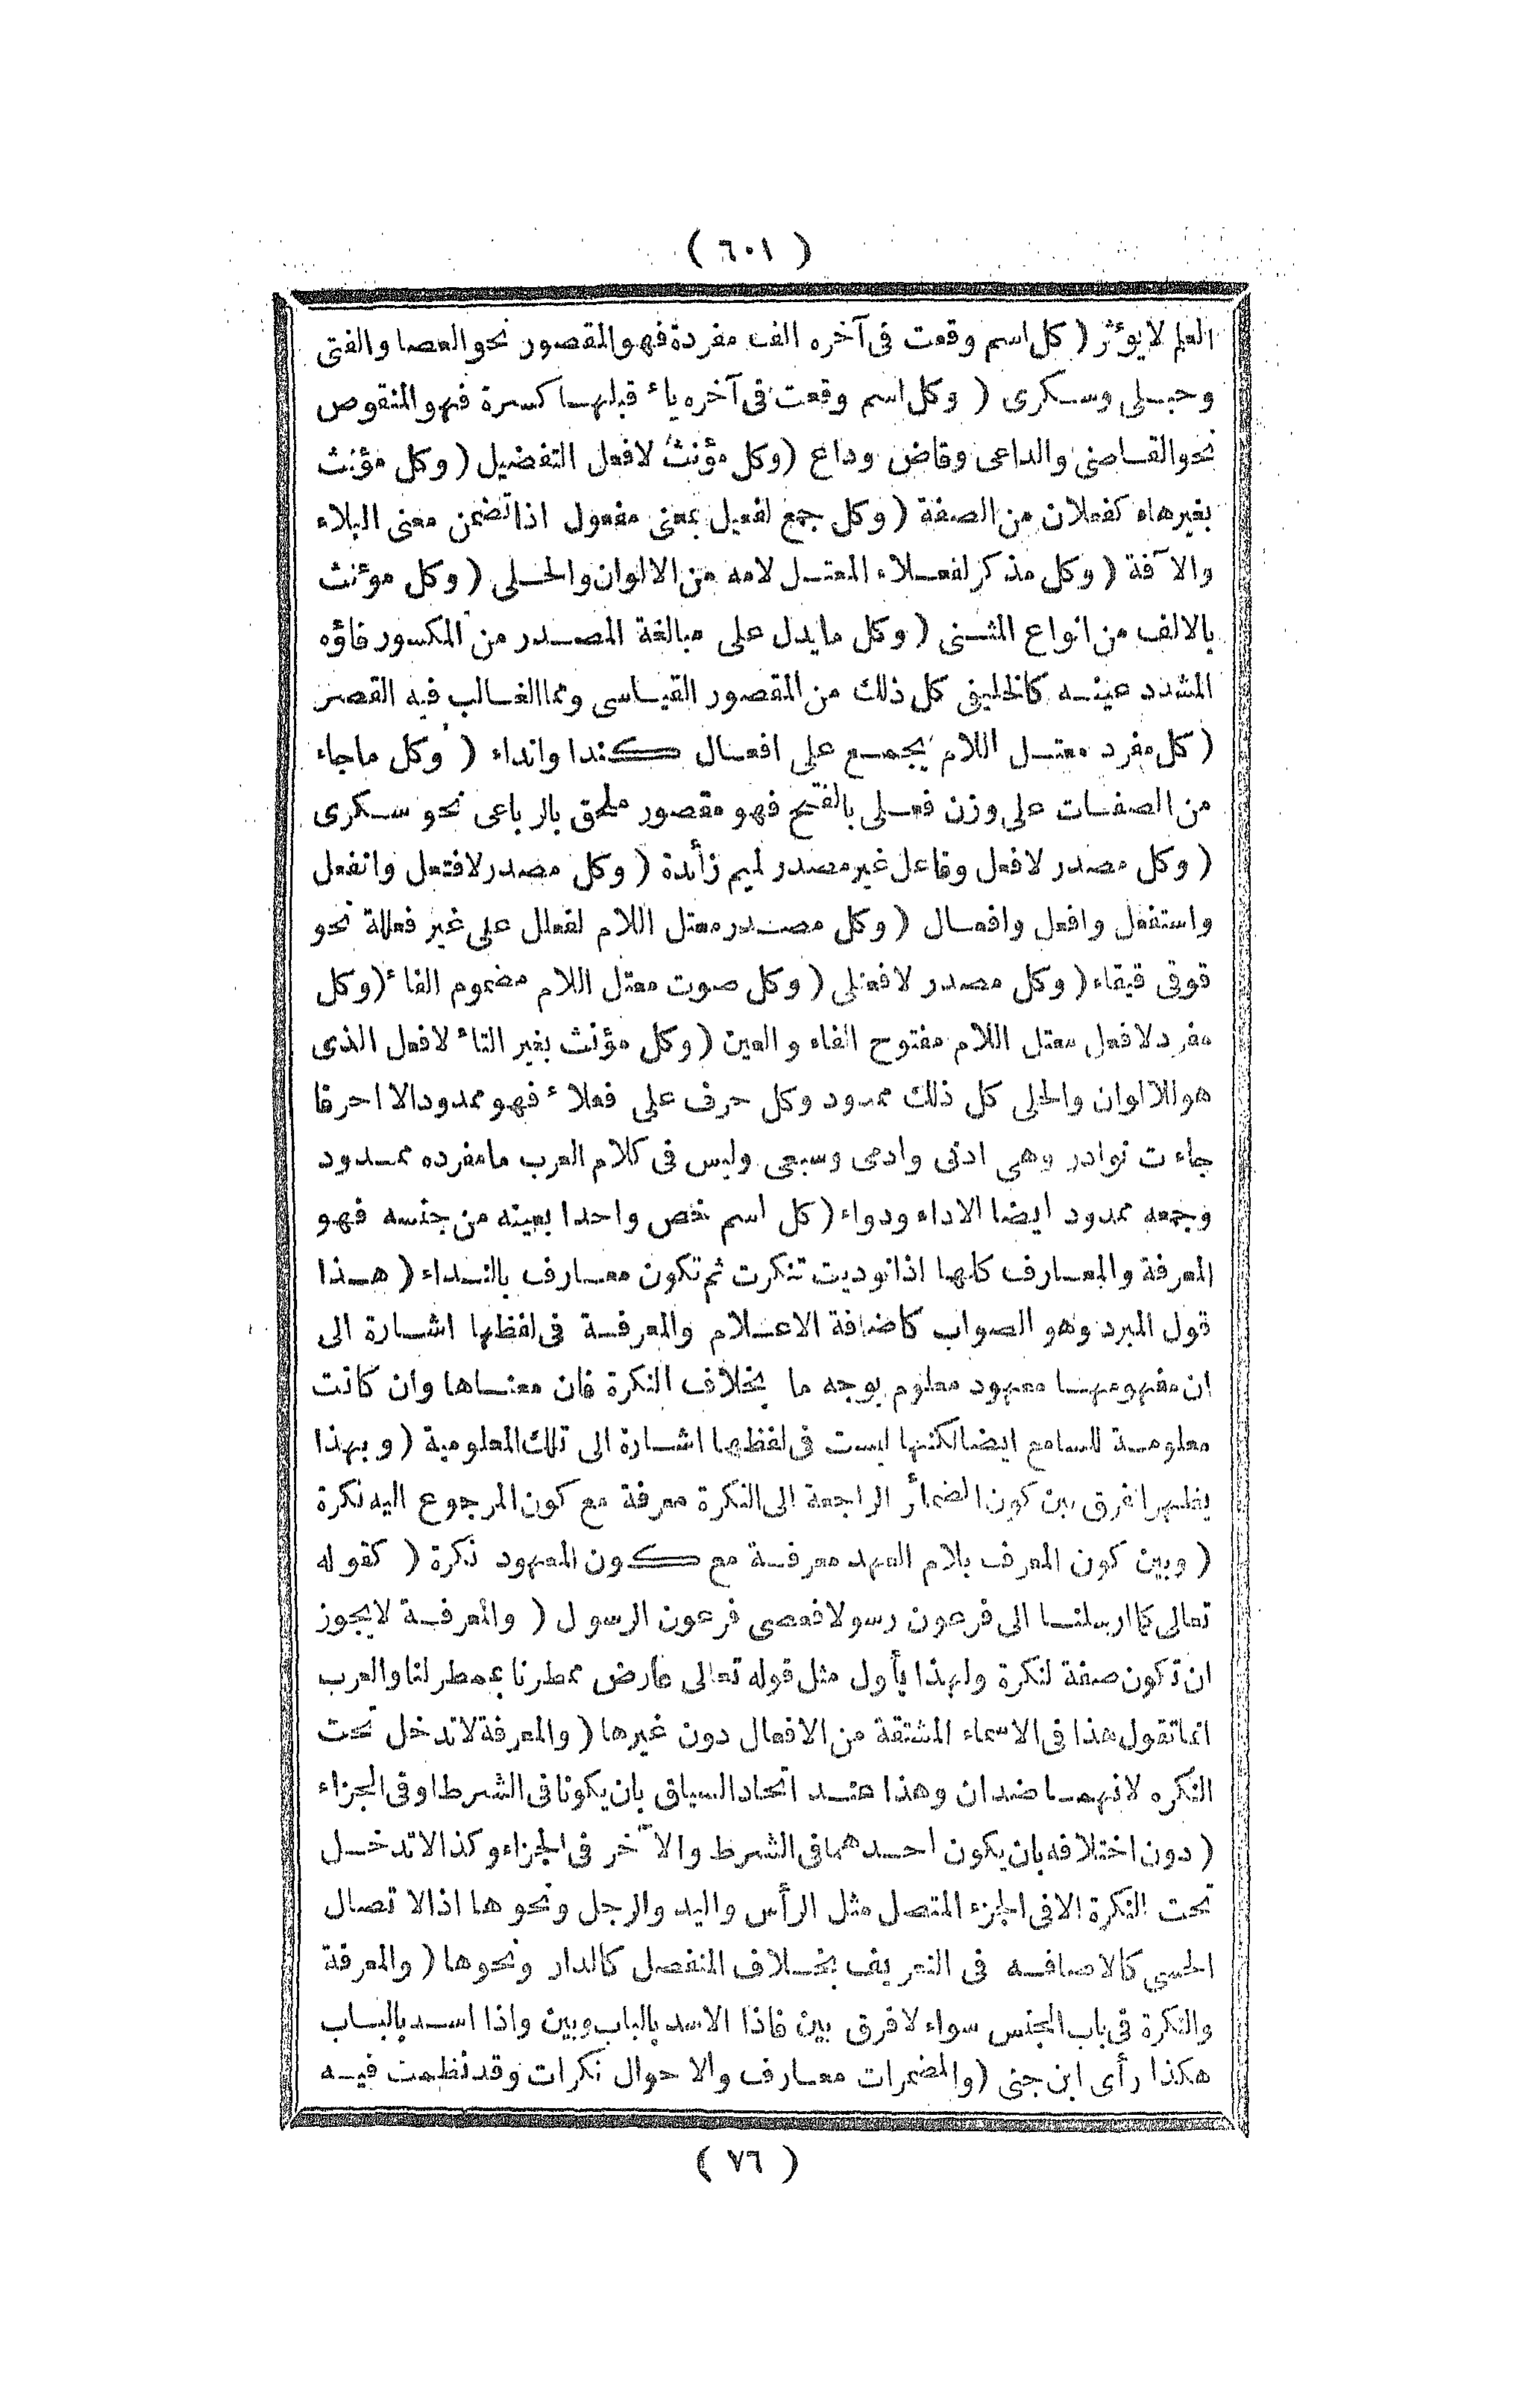 ( ٦٠١ )
العلم لا يؤثر ( كل اسم وقعت فى آخره الف مفردة فهو المقصور نحو العصا والفتى
وحبلى وسكرى ( وكل اسم وقعت فى آخره ياء قبلها كسرة فهو المنقوص
نحو القاضى والداعى وقاض وداع ( وكل مؤنث لافعل التفضيل ( وكل مؤنث
بغيرهاء كفعلان من الصفة ( وكل جمع لفعيل بمعنى مفعول اذا تضمن معنى البلاء
والآفة ( وكل مذكر لفعلاء المعتل لامه من الالوان والحلى ( وكل مؤنث
بالالف من انواع المشى ( وكل ما يدل على مبالغة المصدر من المكسور فاؤه
المشدد عينه كالخليفى كل ذلك من المقصور القياسى ومما الغالب فيه القصر
( كل مفرد معتل اللام يجمع على افعال كندا وانداء ( وكل ماجاء
من الصفات على وزن فعلى بالفتح فهو مقصور ملحق بالرباعى نحو سكرى
( وكل مصدر لافعل وفاعل غير مصدر لميم زائدة ( وكل مصدر لافتعل وانفعل
واستفعل وافعل وافعال ( وكل مصدر معتل اللام لفعلل على غير فعللة نحو
قوقى قيقاء ( وكل مصدر لافعنلى ( وكل صوت معتل اللام مضموم الفاء ( وكل
مفرد لافعل معتل اللام مفتوح الفاء والعين ( وكل مؤنث بغير التاء لافعل الذى
هو للالوان والحلى كل ذلك ممدود وكل حرف على فعلاء فهو ممدود الا احرفا
جاءت نوادر وهى ادنى وادمى وسبعى وليس فى كلام العرب ما مفرده ممدود
وجمعه ممدود ايضا الاداء ودواء ( كل اسم خص واحدا بعينه من جنسه فهو
المعرفة والمعارف كلها اذا نوديت تنكرت ثم تكون معارف بالنداء ( هذا
قول المبرد وهو الصواب كاضافة الاعلام والمعرفة فى لفظها اشارة الى
ان مفهومها معهود معلوم بوجه ما بخلاف النكرة فان معناها وان كانت
معلومة للسامع ايضا لكنها ليست فى لفظها اشارة الى تلك المعلومية ( وبهذا
يظهر الفرق بين كون الضمائر الراجعة الى النكرة معرفة مع كون المرجوع اليه نكرة
( وبين كون المعرف بلام العهد معرفة مع كون المعهود نكرة ( كقوله
تعالى كما ارسلنا الى فرعون رسولا فعصى فرعون الرسول ( والمعرفة لا يجوز
ان تكون صفة لنكرة ولهذا يأول مثل قوله تعالى عارض ممطرنا بممطر لنا والعرب
انما تقول هذا فى الاسماء المشتقة من الافعال دون غيرها ( والمعرفة لا تدخل تحت
النكره لانهما ضدان وهذا عند اتحاد السياق بان يكونا فى الشرط او فى الجزاء
( دون اختلافه بان يكون احدهما فى الشرط والآخر فى الجزاء وكذا لا تدخل
تحت النكرة الا فى الجزء المتصل مثل الرأس واليد والرجل ونحوها اذ الاتصال
الحسى كالاضافه فى التعريف بخلاف المنفصل كالدار ونحوها ( والمعرفة
والنكرة فى باب الجنس سواء لا فرق بين فاذا الاسد بالباب وبين واذا اسد بالباب
هكذا رأى ابن جنى ( والمضمرات معارف والاحوال نكرات وقد نظمت فيه
( ٧٦ )